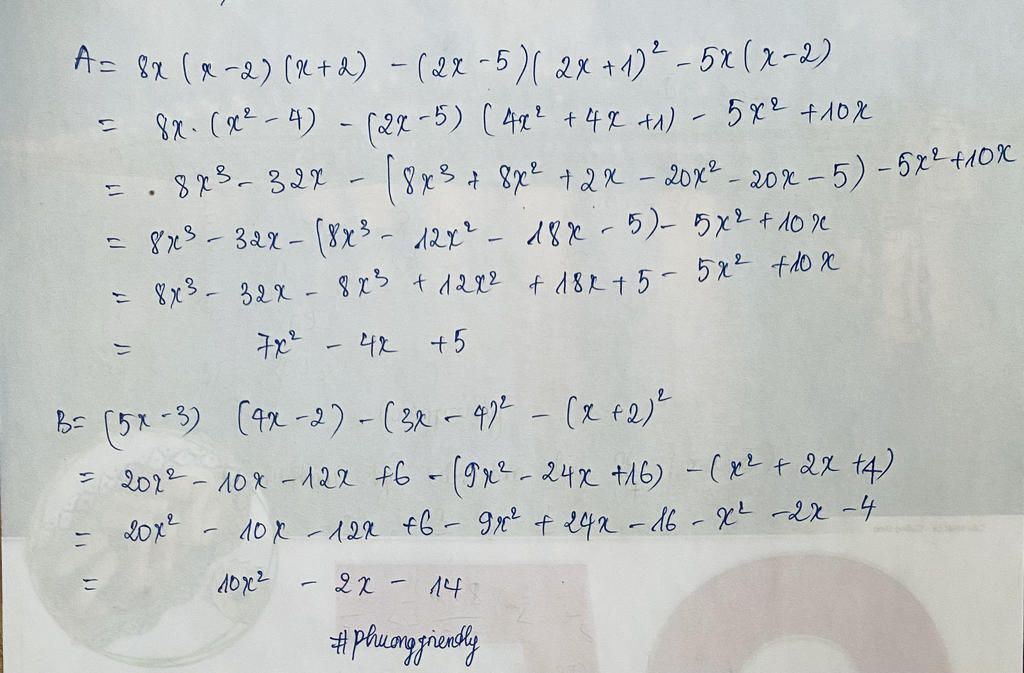 A= 8x (x-2) (x+2) - (2x-5)( 2x+1)² - 5x(x-2)
= 8x. (x² - 4) - (2x-5) ( 4x² + 4x +1) - 5x² +10x
= . 8x³ - 32x - (8x³ + 8x² + 2x - 20x² - 20x - 5) - 5x² +10x
= 8x³ - 32x - (8x³ - 12x² - 18x - 5) - 5x² + 10x
= 8x³ - 32x - 8x³ + 12x² + 18x + 5 - 5x² +10x
= 7x² - 4x +5
B= (5x-3) (4x-2) - (3x-4)² - (x+2)²
= 20x² - 10x - 12x +6 - (9x² - 24x +16) - (x² + 2x +4)
= 20x² - 10x - 12x +6 - 9x² + 24x - 16 - x² - 2x - 4
= 10x² - 2x - 14
#phuongfriendly